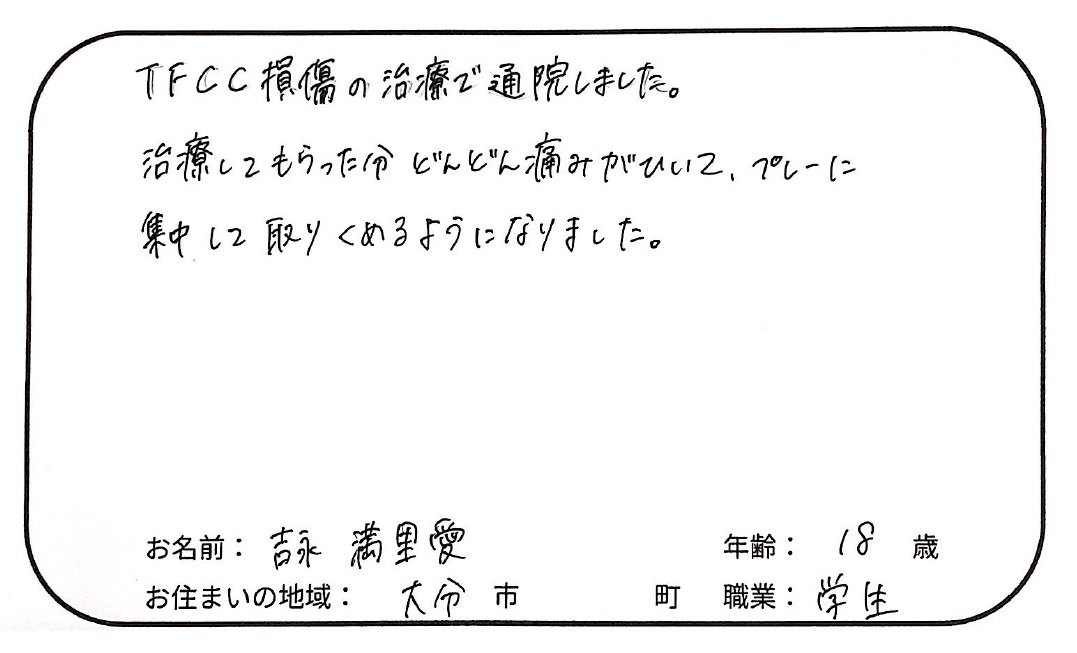 TFCC損傷の治療で通院しました。
治療してもらった分どんどん痛みがひいて、プレーに
集中して取りくめるようになりました。
お名前： 吉永 満里愛 年齢： 18 歳
お住まいの地域： 大分 市 町 職業： 学生